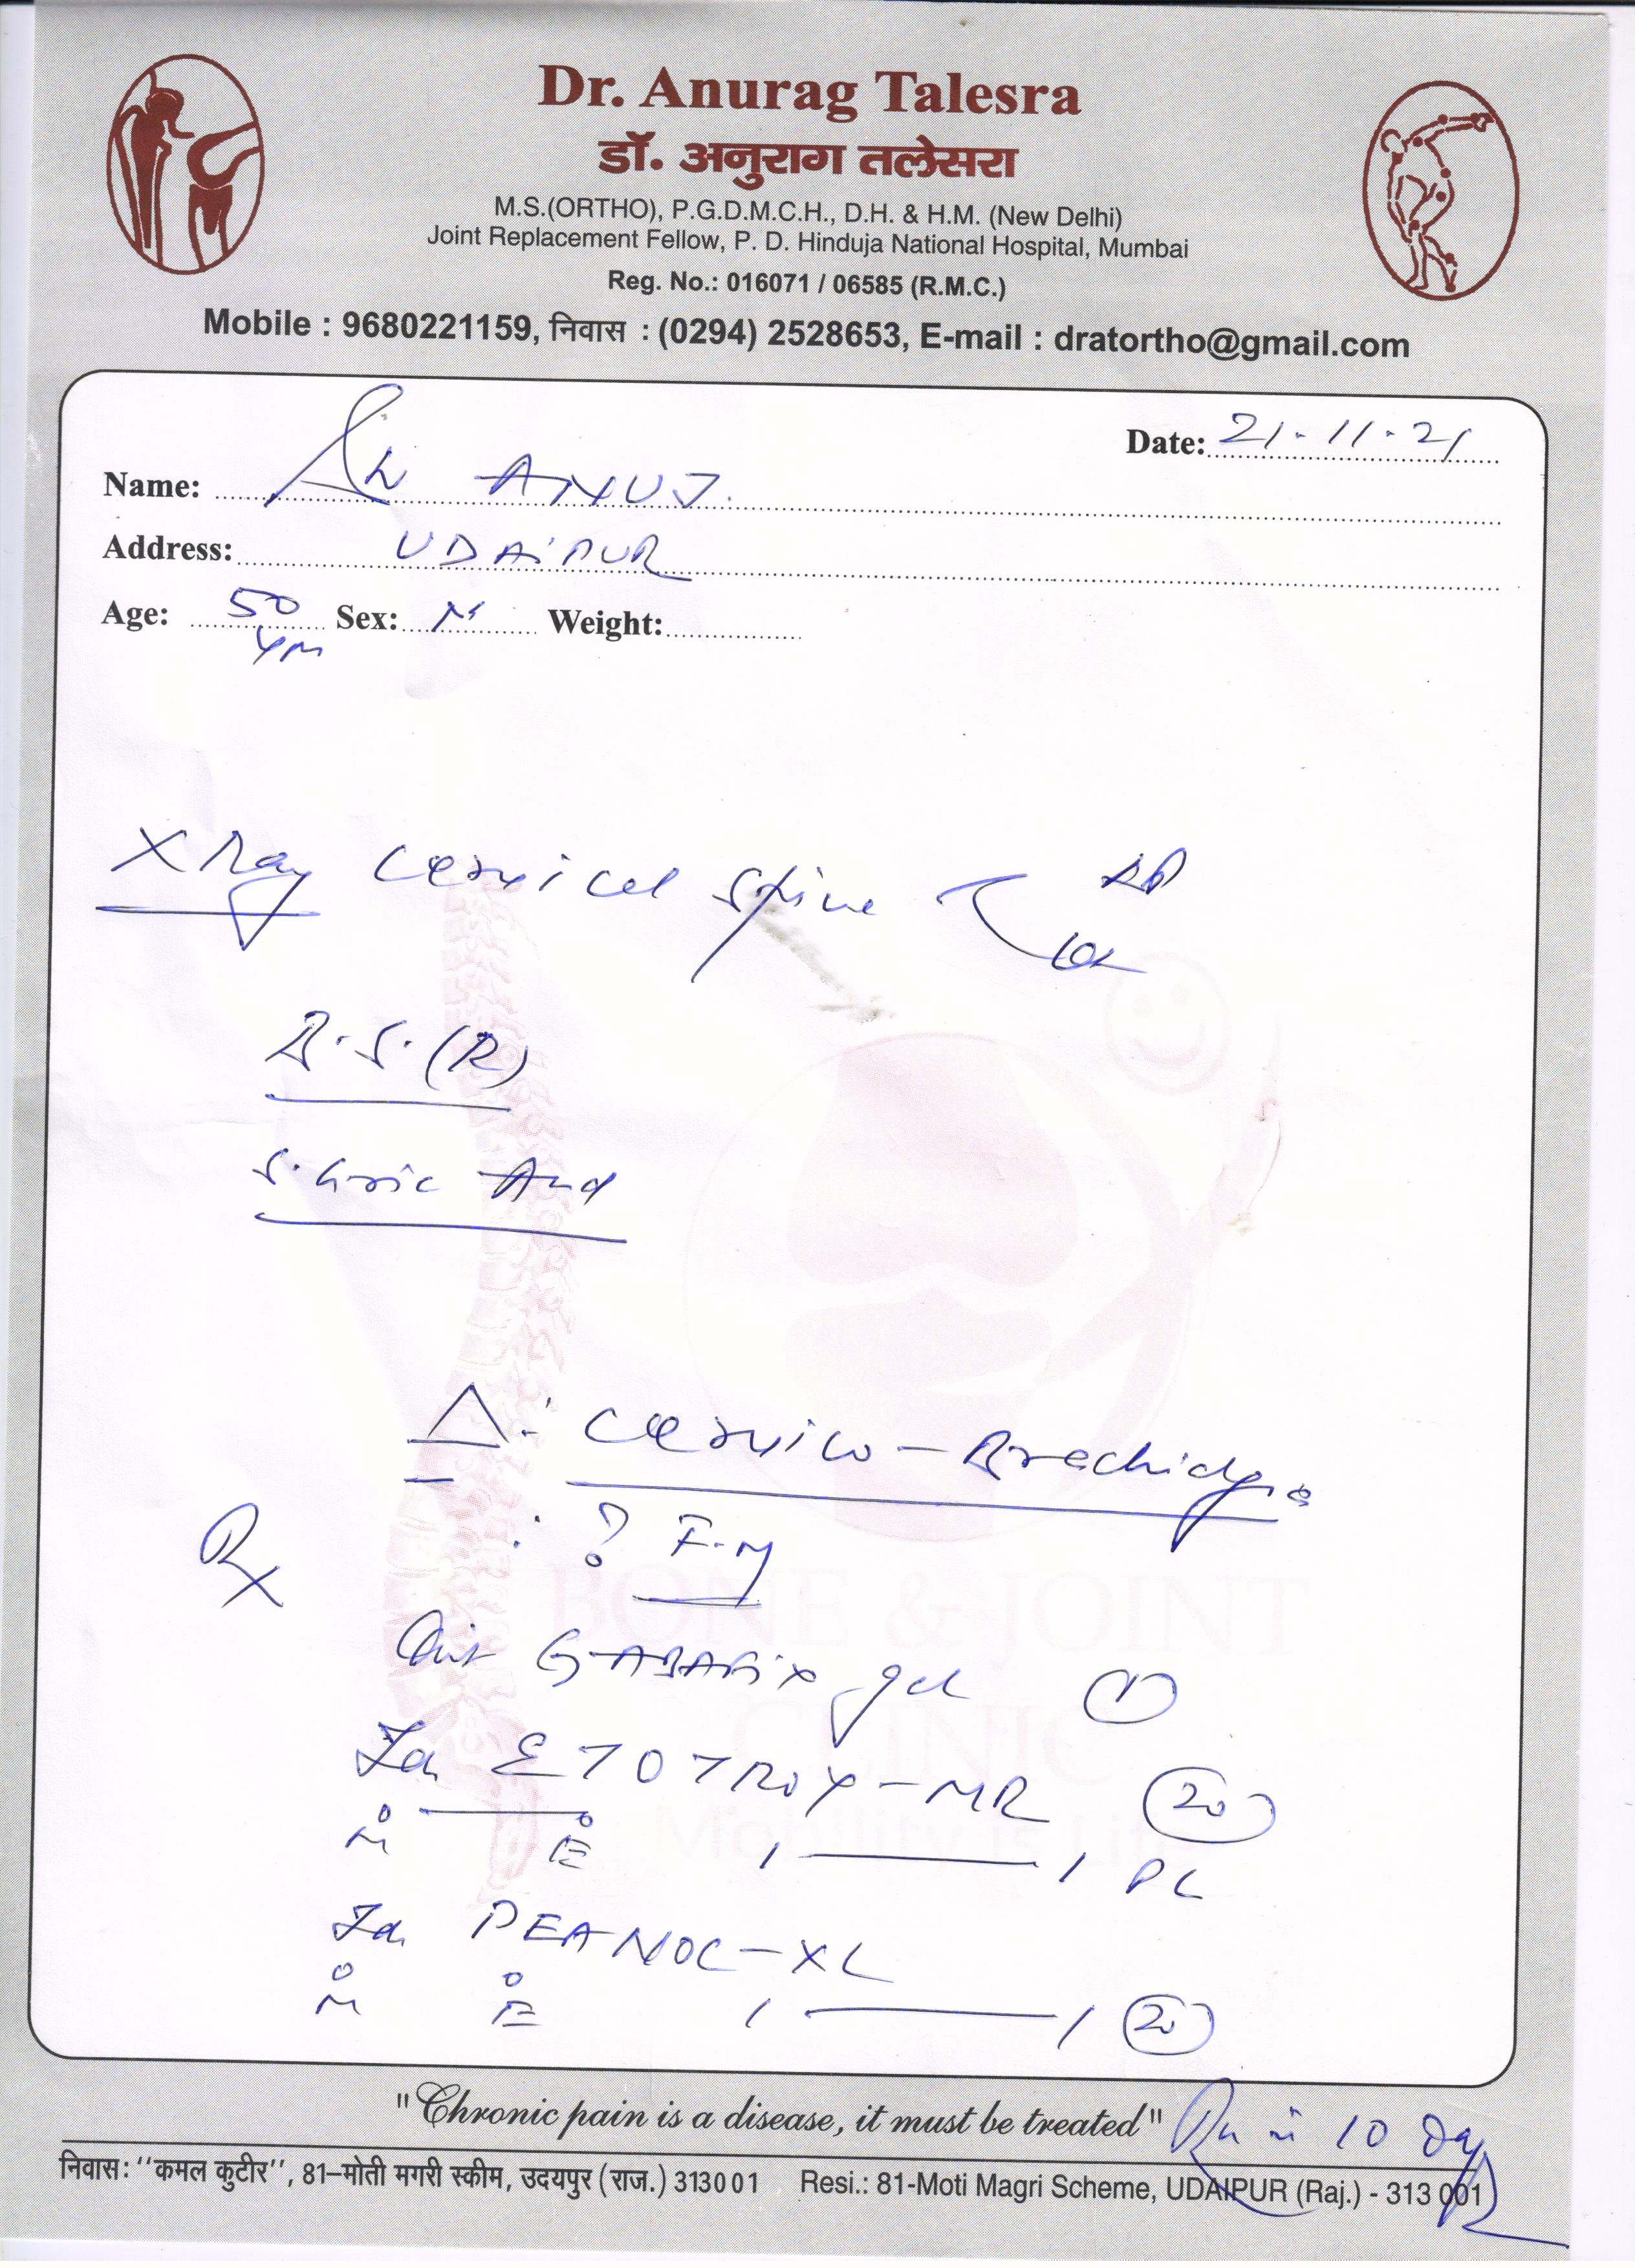 Dr. Anurag Talesra
डॉ. अनुराग तलेसरा
M.S.(ORTHO), P.G.D.M.C.H., D.H. & H.M. (New Delhi)
Joint Replacement Fellow, P. D. Hinduja National Hospital, Mumbai
Reg. No.: 016071 / 06585 (R.M.C.)
Mobile : 9680221159, निवास : (0294) 2528653, E-mail : dratortho@gmail.com
Date: 21.11.21
Name: ANUJ
Address: UDAIPUR
Age: 50 Sex: M Weight:
X Ray Cervical Spine AP
B.S.(R)
S. Uric Acid
Δ: Cervico-Brachialgia
: ? F.M
Rx
Oint GABAFIX gel 1
ETOTROX-MR 20
M E 1 — 1 PC
PEANOC-XL
M E 1 — 1 20
BONE & JOINT
CLINIC
"Chronic pain is a disease, it must be treated" 10 Day
निवास: "कमल कुटीर", 81–मोती मगरी स्कीम, उदयपुर (राज.) 313001 Resi.: 81-Moti Magri Scheme, UDAIPUR (Raj.) - 313 001